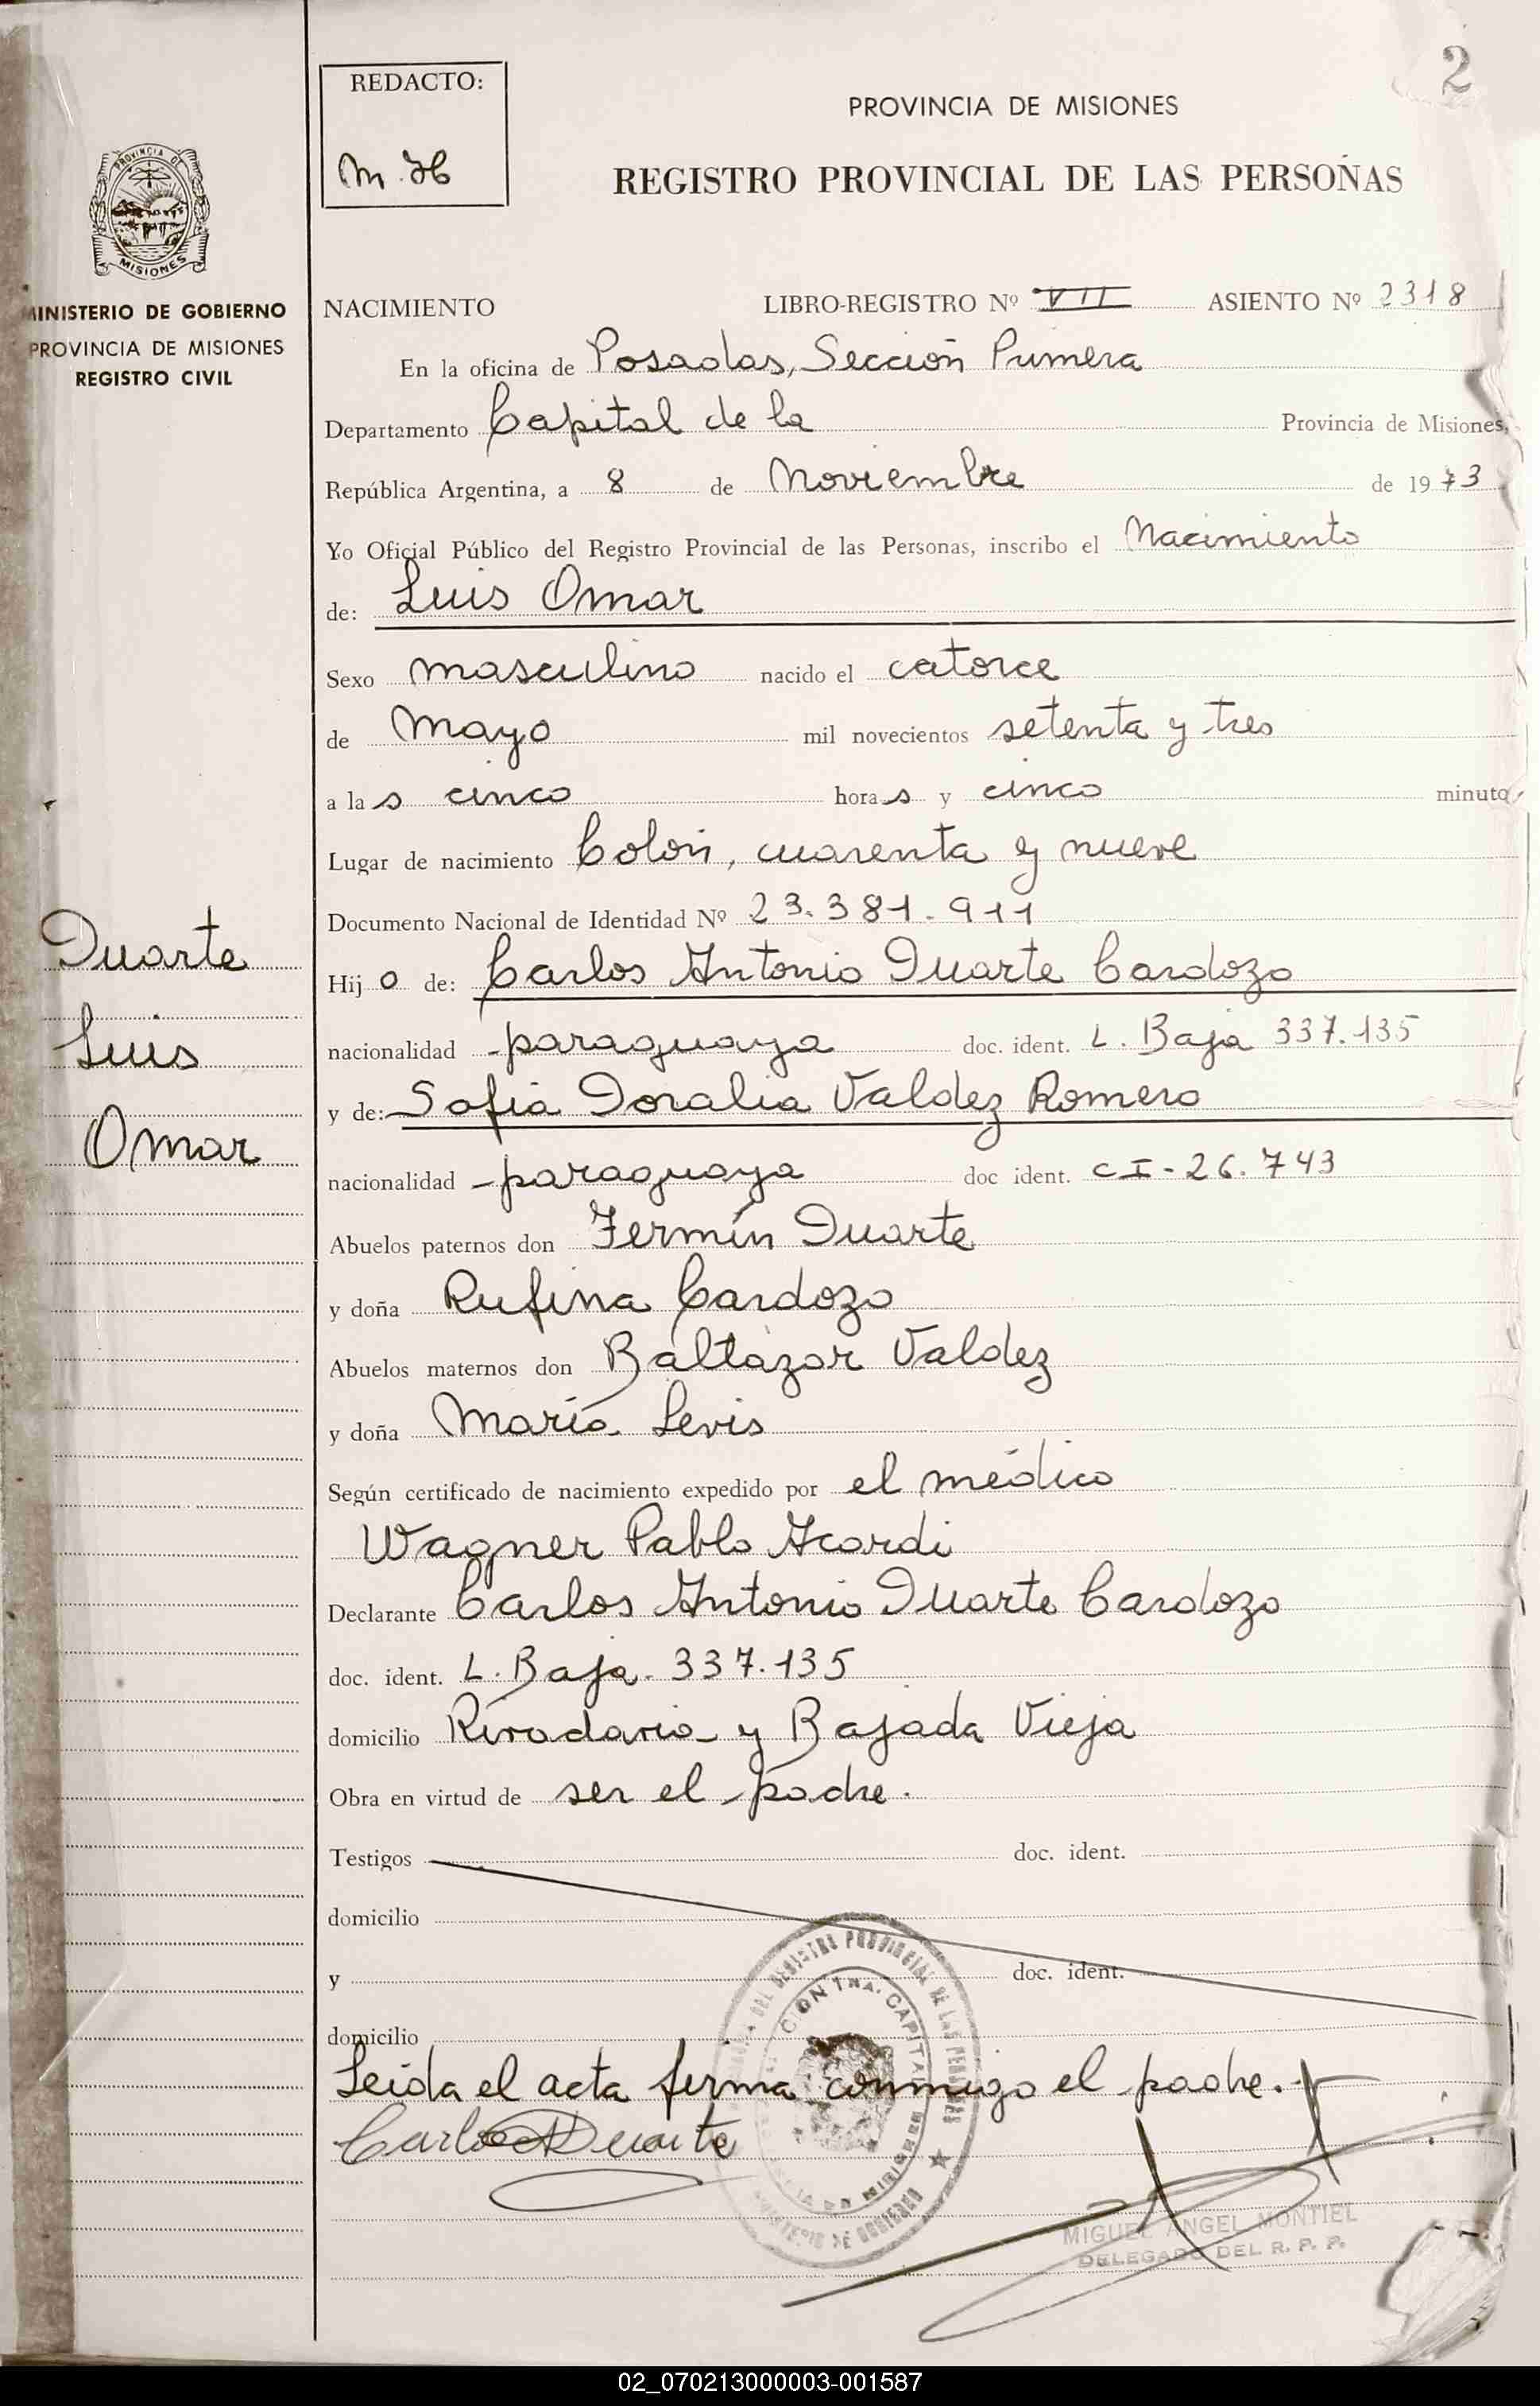 2
REDACTO:
M. H
PROVINCIA DE MISIONES
REGISTRO PROVINCIAL DE LAS PERSONAS
PROVINCIA DE
MISIONES
MINISTERIO DE GOBIERNO
PROVINCIA DE MISIONES
REGISTRO CIVIL
NACIMIENTO LIBRO-REGISTRO Nº VII ASIENTO Nº 2318
En la oficina de Posadas, Sección Primera
Departamento Capital de la Provincia de Misiones,
República Argentina, a 8 de Noviembre de 1973
Yo Oficial Público del Registro Provincial de las Personas, inscribo el Nacimiento
de: Luis Omar
Sexo masculino nacido el catorce
de Mayo mil novecientos setenta y tres
a las cinco horas y cinco minuto
Lugar de nacimiento Colón, cuarenta y nueve
Documento Nacional de Identidad Nº 23.381.911
Duarte
Luis
Omar
Hijo de: Carlos Antonio Duarte Cardozo
nacionalidad paraguaya doc. ident. L. Baja 337.135
y de: Sofia Doralia Valdez Romero
nacionalidad paraguaya doc ident. CI-26.743
Abuelos paternos don Fermín Duarte
y doña Rufina Cardozo
Abuelos maternos don Baltazar Valdez
y doña María Levis
Según certificado de nacimiento expedido por el médico
Wagner Pablo Acordi
Declarante Carlos Antonio Duarte Cardozo
doc. ident. L. Baja. 337.135
domicilio Rivadavia y Bajada Vieja
Obra en virtud de ser el padre.
Testigos doc. ident.
domicilio
y doc. ident.
domicilio
Leída el acta firma conmigo el padre.
Carlos A Duarte
MIGUEL ANGEL MONTIEL
DELEGADO DEL R. P. P.
02_070213000003-001587